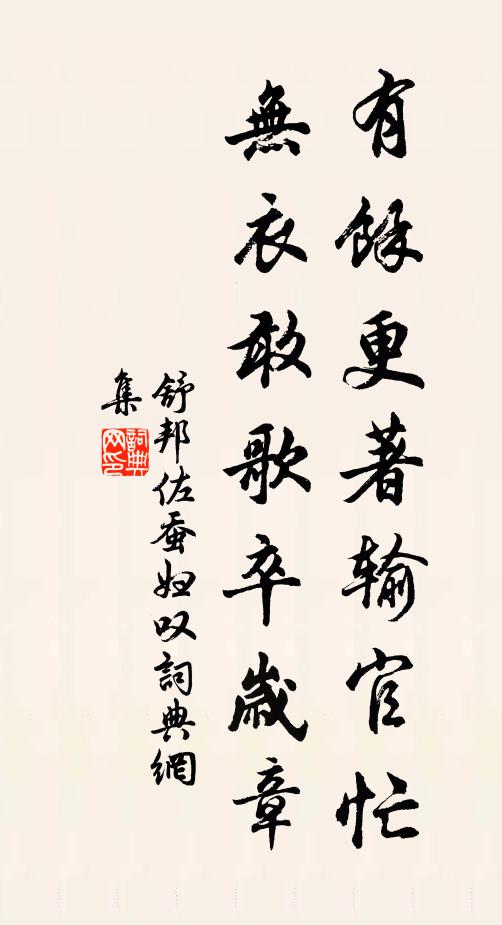 有餘更著输官忙
無衣敢歌卒歲章
舒邦佐蚕妇叹詞典網
集
詞典网印